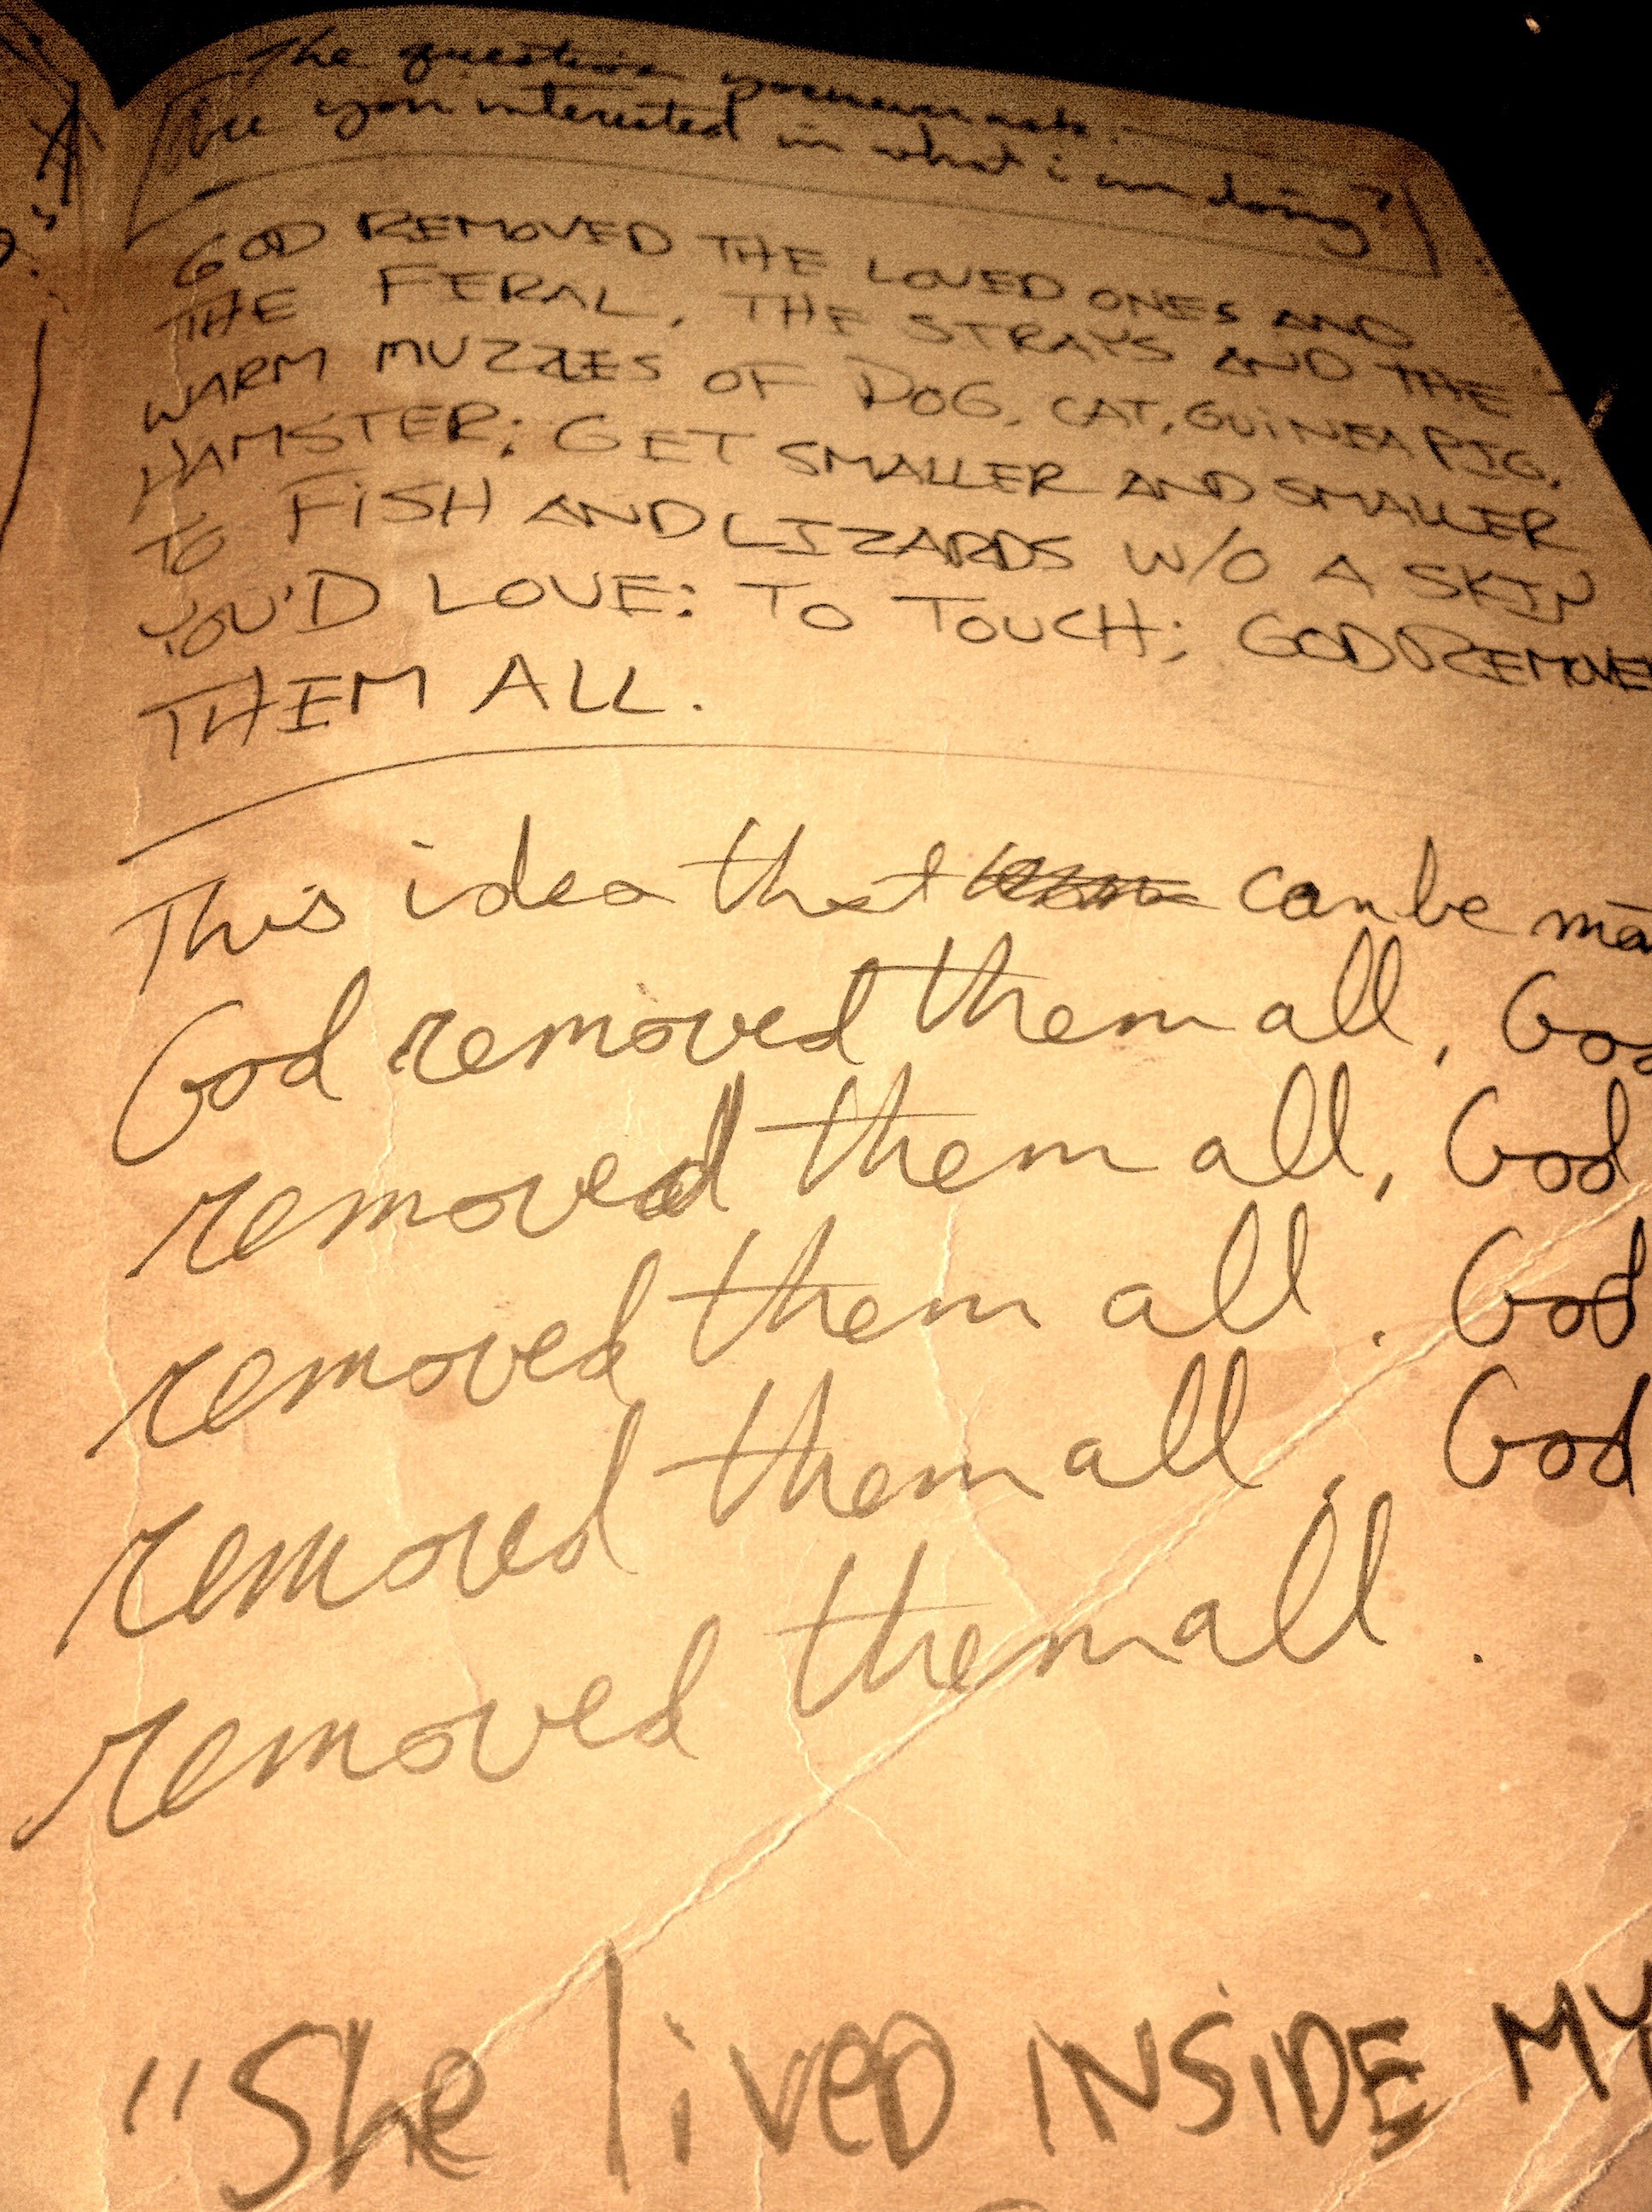 The question you never ask:
Are you interested in what i am doing?
GOD REMOVED THE LOVED ONES AND
THE FERAL, THE STRAYS AND THE
WARM MUZZLES OF DOG, CAT, GUINEA PIG,
HAMSTER; GET SMALLER AND SMALLER
TO FISH AND LIZARDS W/O A SKIN
YOU'D LOVE: TO TOUCH; GOD REMOVE
THEM ALL.
This idea that can be ma
God removed them all, God
removed them all, God
removed them all. God
removed them all. God
removed them all.
"She lived INSIDE MY